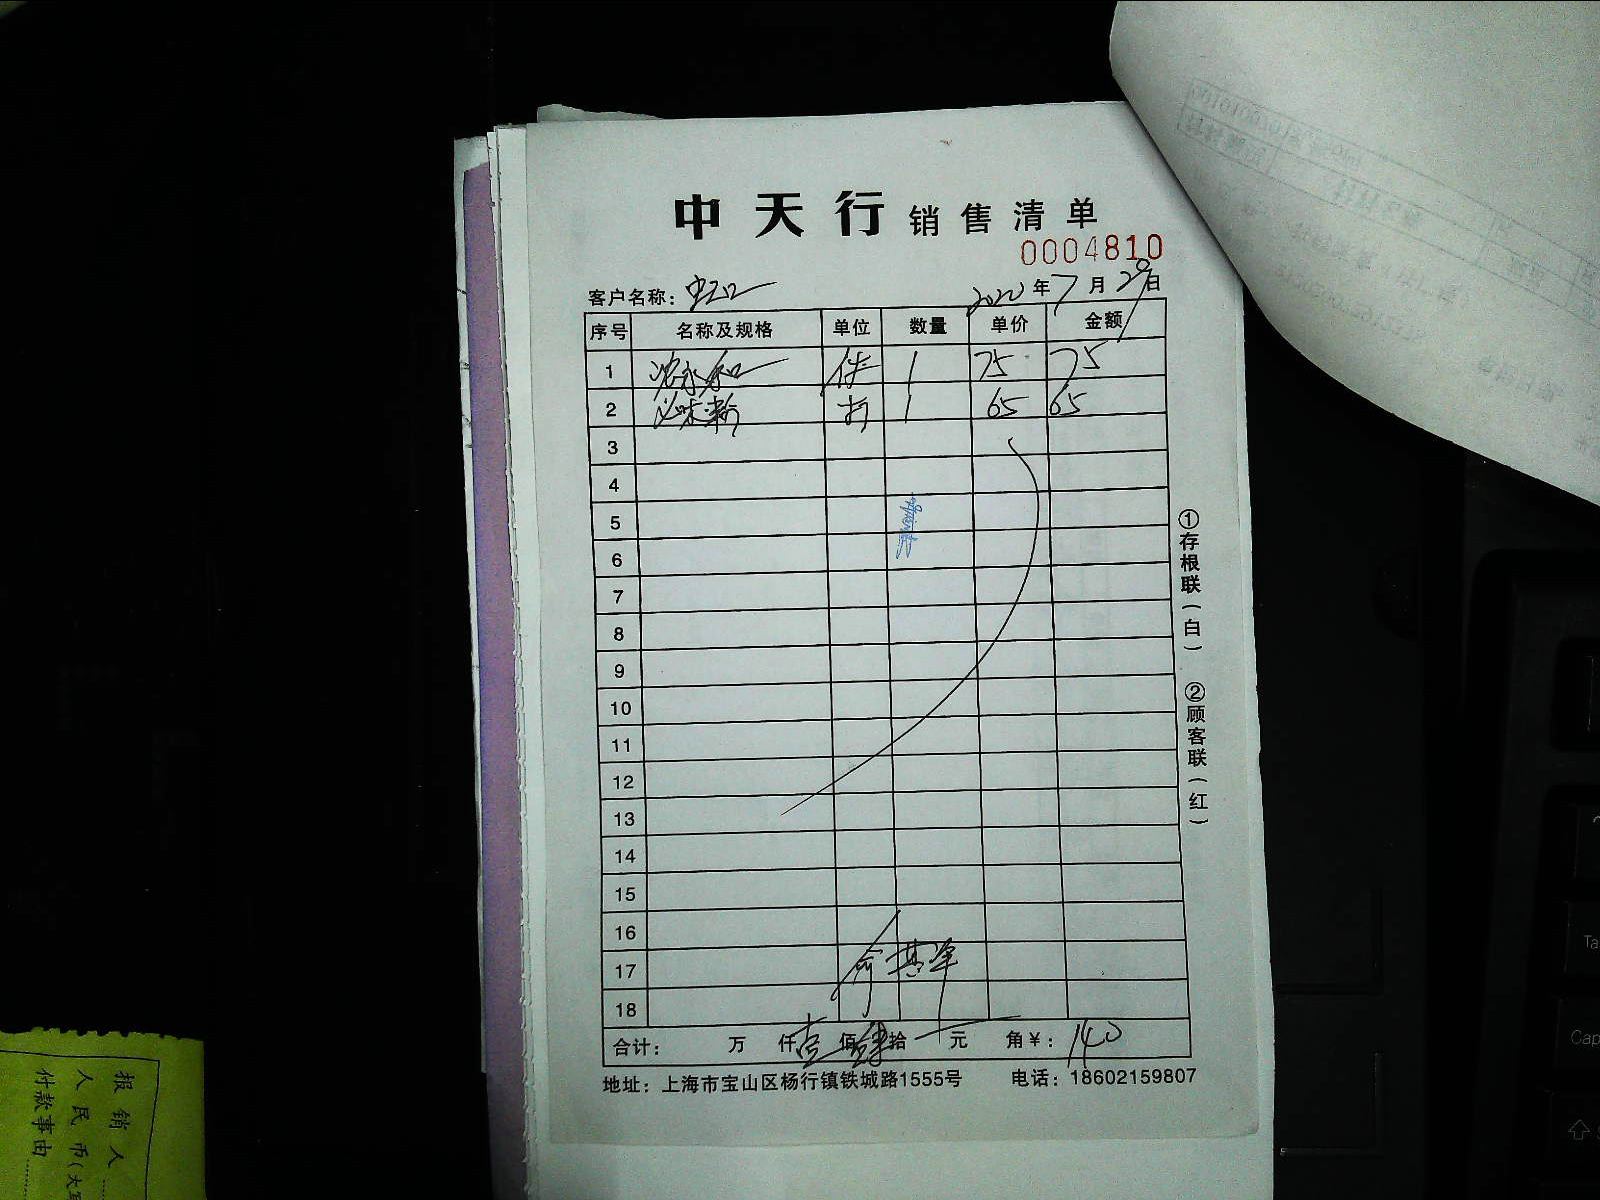 中天行 销售清单
0004810
客户名称： 2020年7月29日
序号 名称及规格 单位 数量 单价 金额
1 1 75 75
2 1 65 65
3
4
5
6
7
8
9
10
11
12
13
14
15
16
17
18
合计： 万 仟壹佰肆拾 元 角￥：140
地址：上海市宝山区杨行镇铁城路1555号 电话：18602159807
①存根联（白）
②顾客联（红）
报销人
人民币（大写
付款事由